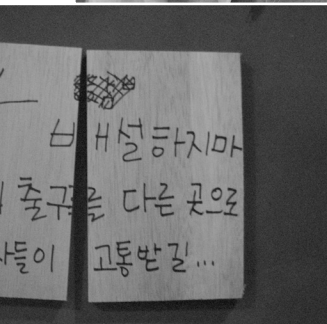 배설하지마
출구를 다른 곳으로
들이 고통받길...